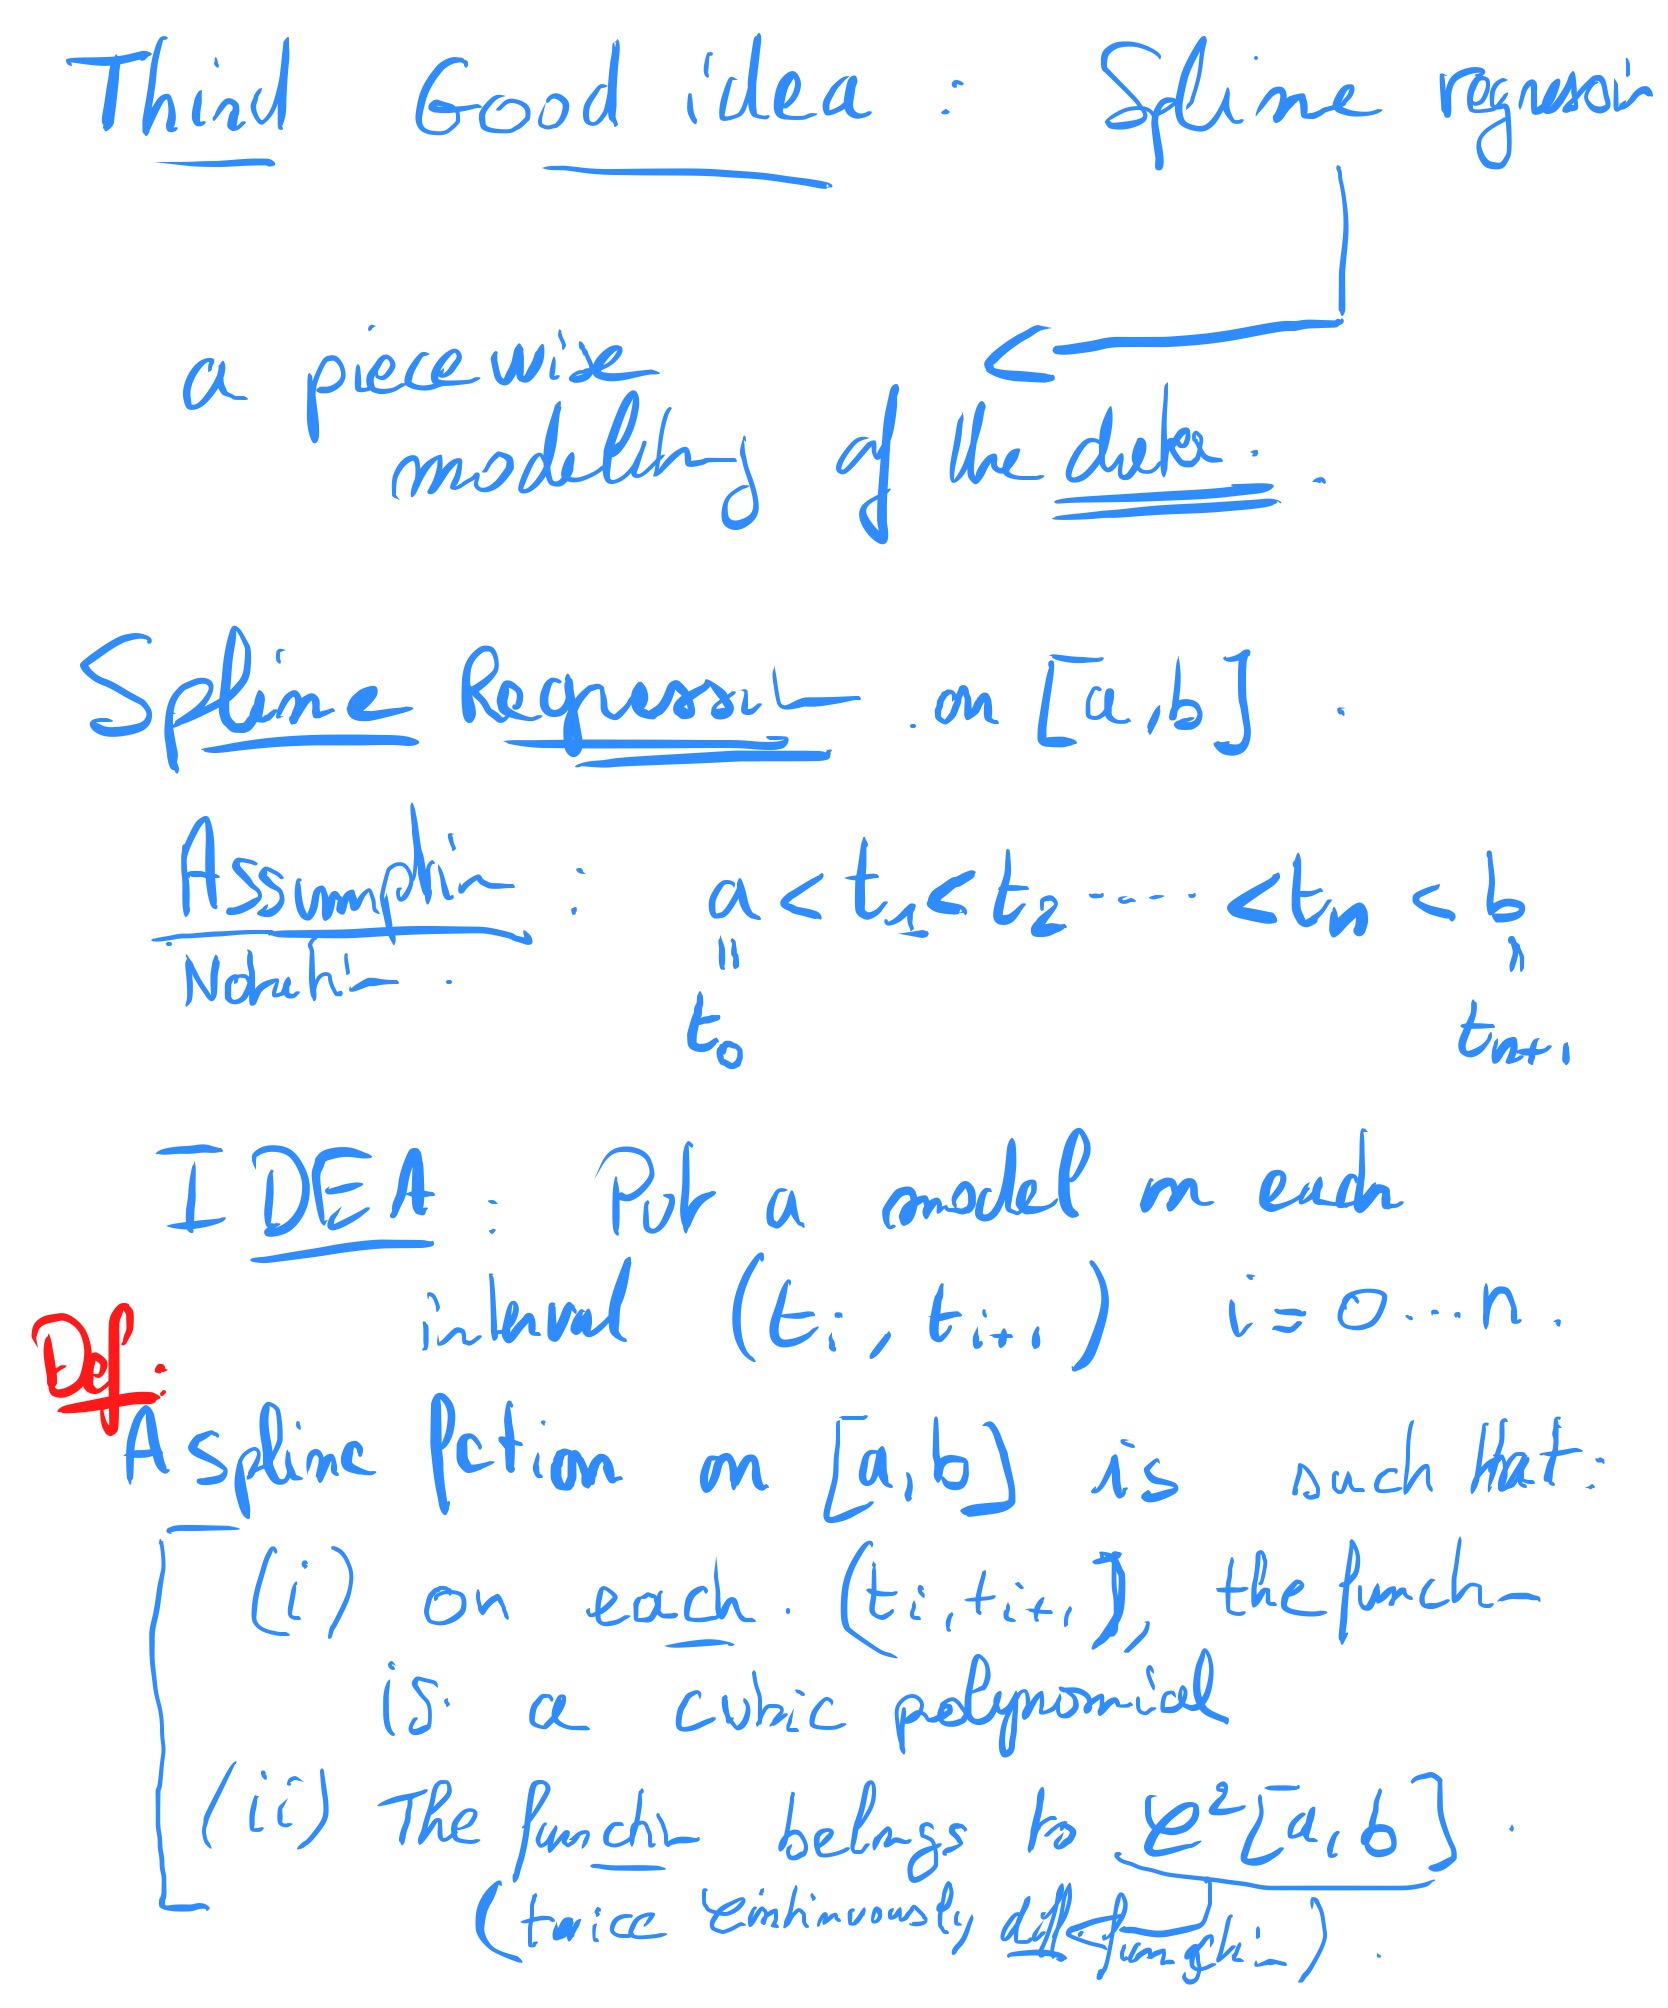 Third Good idea : Spline regression
a piecewise
modelling of the data .
Spline Regression on [a,b] .
Assumption : a < t₁ < t₂ ---- < tₙ < b
Notation . " "
t₀ tₙ₊₁
IDEA : Put a model on each
interval (tᵢ, tᵢ₊₁) i = 0 ... n .
Def:
A spline fction on [a,b] is such that :
(i) on each (tᵢ, tᵢ₊₁], the function
is a cubic polynomial
(ii) The function belongs to C²[a,b] .
(twice continuously diff function) .